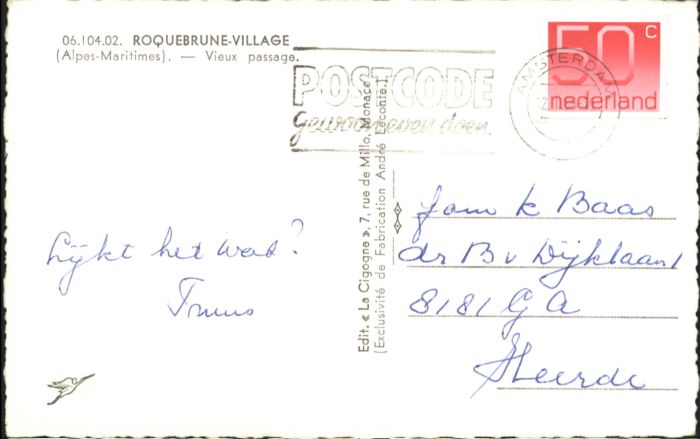 06.104.02. ROQUEBRUNE-VILLAGE
(Alpes-Maritimes). — Vieux passage.
POSTCODE
Gewoon even doen.
AMSTERDAM
50 c
nederland
Edit. « La Cigogne », 7, rue de Millo, Monaco
(Exclusivité de Fabrication André Leconte.)
Lijkt het wat?
Truus
fam k Baas
dr B v Dijklaan 1
8181 GA
Heerde